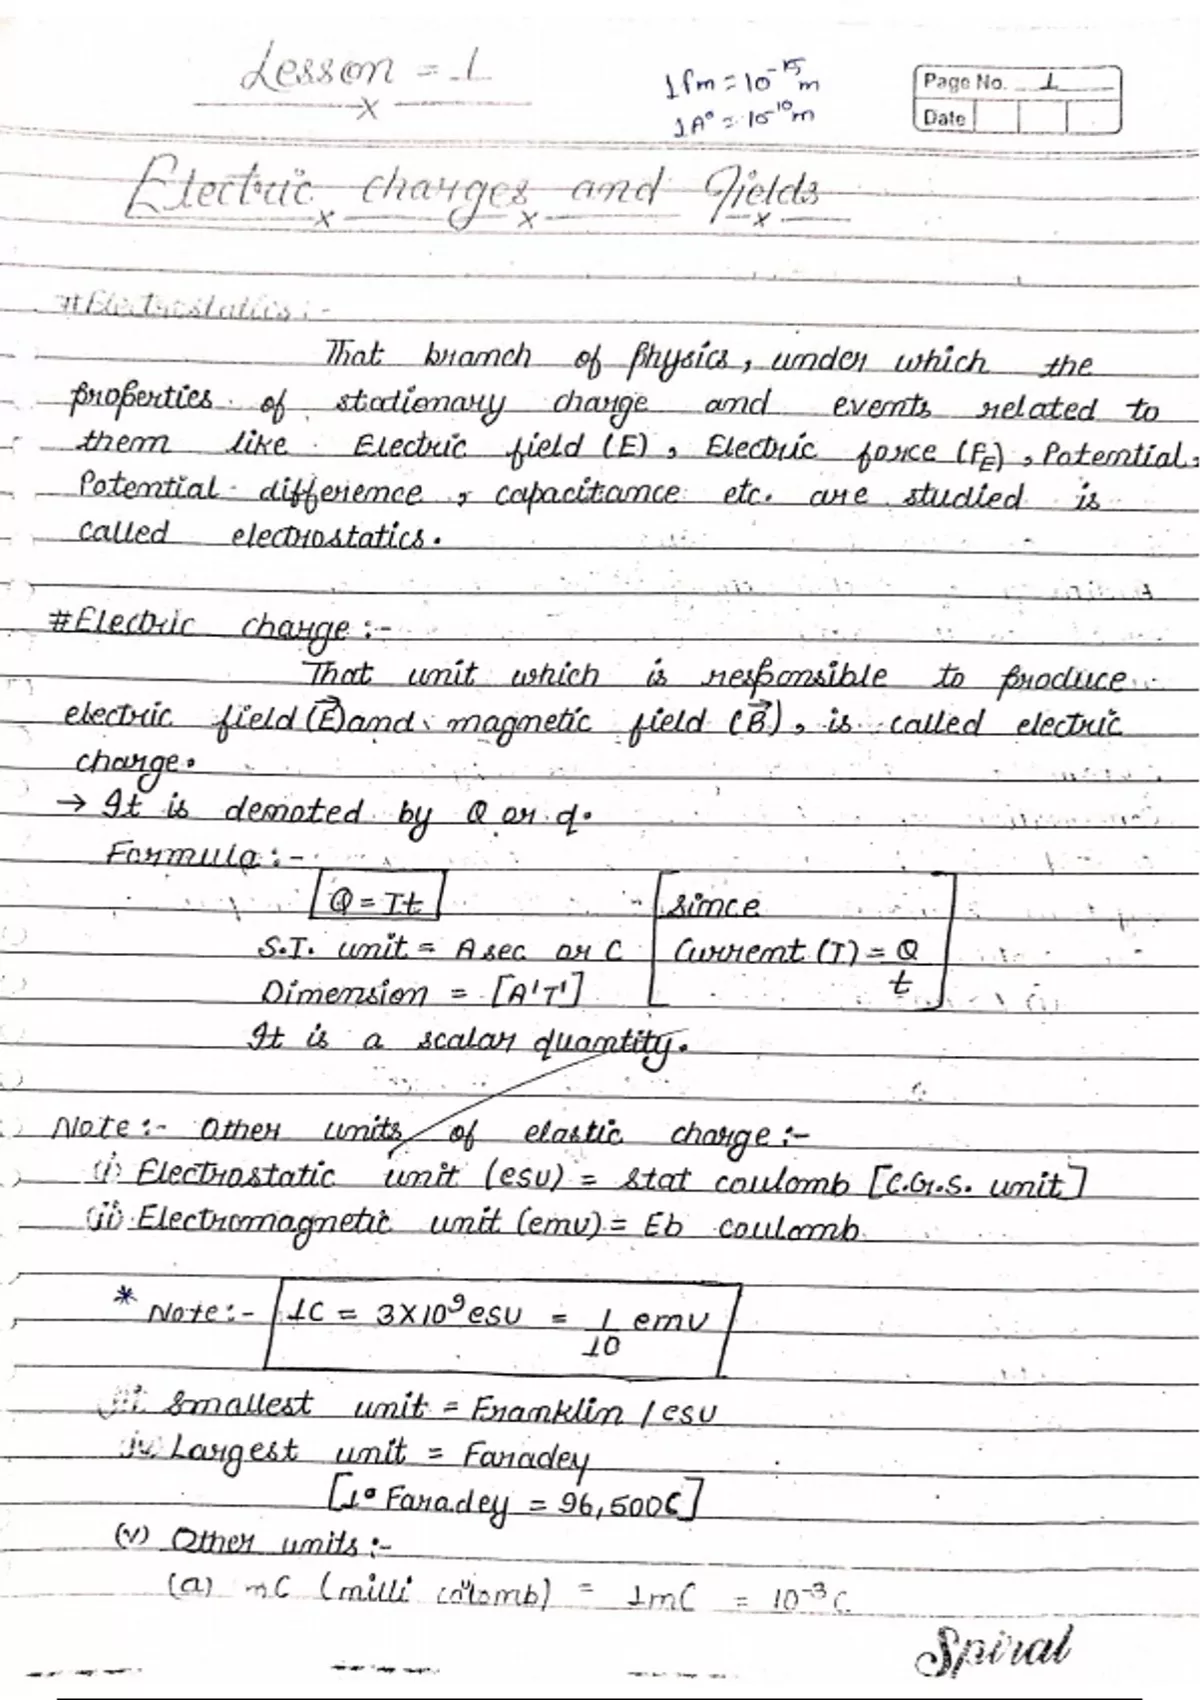 Lesson = 1
1 fm = 10⁻¹⁵ m
1 A° = 10⁻¹⁰ m
Page No. 1
Date
Electric charges and Fields
# Electrostatics :-
That branch of Physics, under which the
properties of stationary charge and events related to
them like Electric field (E), Electric force (FE), Potential,
Potential difference, capacitance etc. are studied is
called electrostatics.
# Electric charge :-
That unit which is responsible to produce
electric field (E⃗) and magnetic field (B⃗), is called electric
charge.
→ It is denoted by Q or q.
Formula :-
Q = It
S.I. unit = A sec or C
Dimension = [A¹T¹]
It is a scalar quantity.
since
Current (I) = Q/t
Note :- Other units of elastic charge :-
(i) Electrostatic unit (esu) = stat coulomb [C.G.S. unit]
(ii) Electromagnetic unit (emu) = Eb coulomb
* Note :- 1C = 3X10⁹ esu = 1/10 emu
iii. Smallest unit = Franklin / esu
iv. Largest unit = Faradey
[1° Faradey = 96,500C]
(v) Other units :-
(a) mC (milli coulomb) = 1mC = 10⁻³ C
Spiral